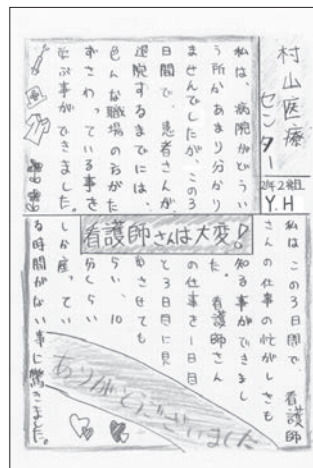 村山医療
センター
2年2組
Y.H
私は、病院がどうい
う所かあまり分かり
ませんでしたが、この3
日間で、患者さんが
退院するまでには、
色んな職場の方がた
ずさわっている事を
学ぶ事ができました。
看護師さんは大変!
私はこの3日間で、看護師
さんの仕事の忙がしさも
知る事ができまし
た。看護師さん
の仕事を1日目
と3日目に見
させても
らい、10
分くらい
しか座ってい
る時間がない事に驚きました。
ありがとうございました